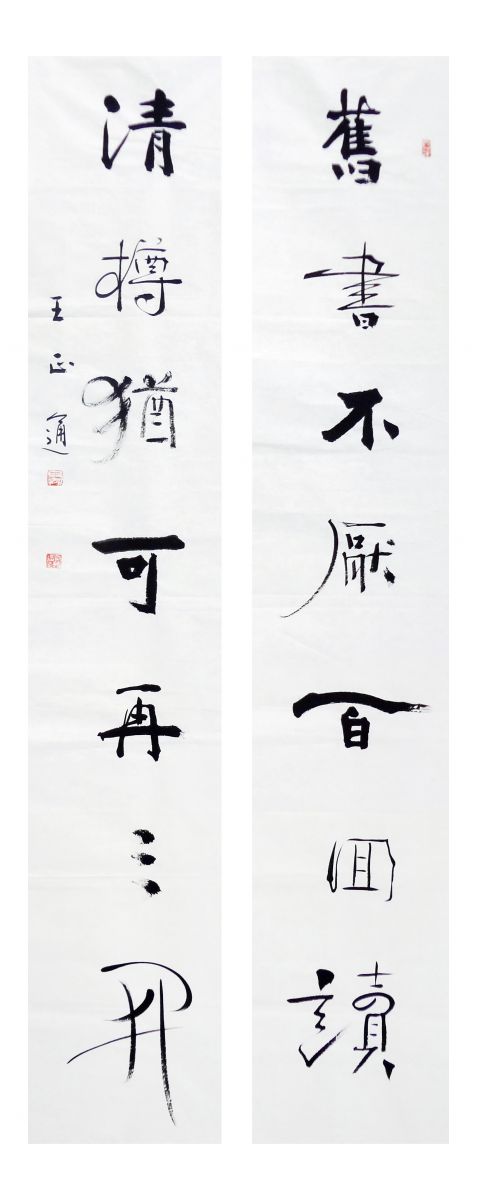 舊書不厭百囬讀
清樽猶可再三開
王正通